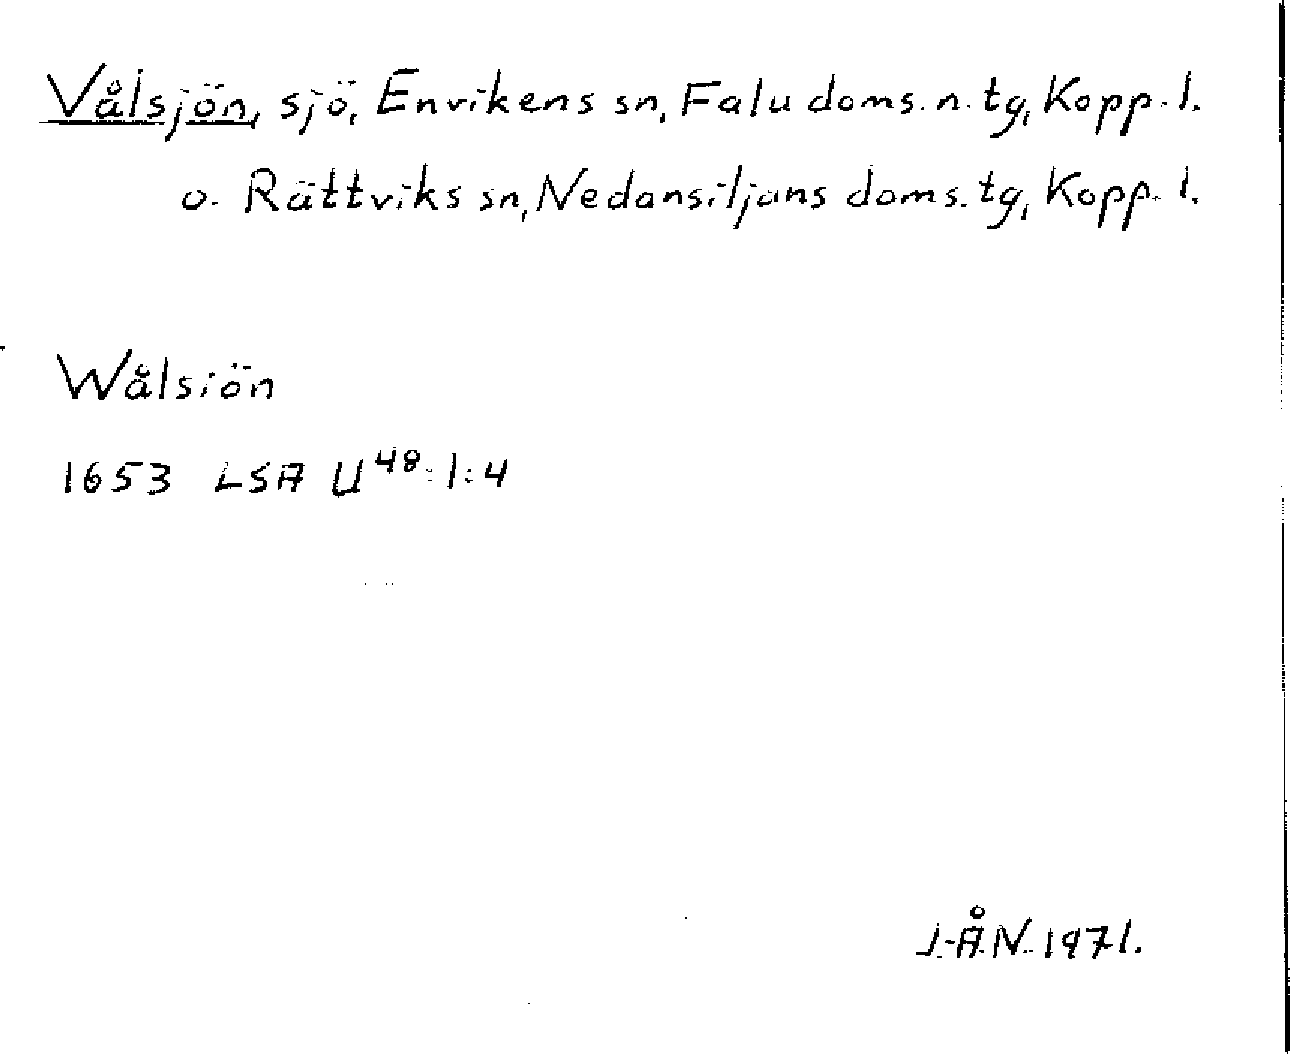 Vålsjön, sjö, Envikens sn, Falu doms. n. tg, Kopp. l.
o. Rättviks sn, Nedansiljans doms. tg, Kopp. l.
Wålsiön
1653 LSA U48:1:4
J-Å N. 1971.